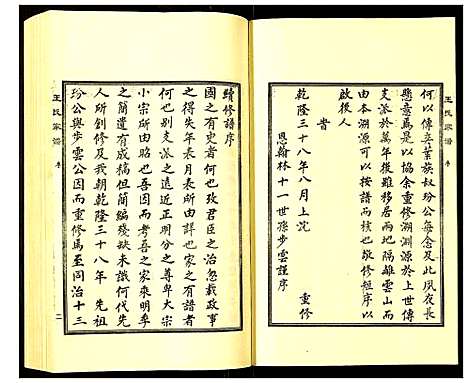 王氏家譜
序
何以傳弈葉族奴玢公每念及此夙夜長
懸意焉是以協余重修溯淵源於上世傳
支派於萬年後雖移居兩地隔離雲山而
由本溯源可以按譜而核也敬修短序以
啟後人
旹
乾隆三十八年八月上浣 重修
恩翰林十一世孫步雲謹序
續修譜序
國之有史者何也攷君臣之治忽載政事
之得失年表月表所由詳也家之有譜者
何也別支派之遠近正明分之尊卑大宗
小宗所由昭也吾因而考吾之家來明季
之簡蕭有成稿但簡編殘缺未識何代先
人所創修及我朝乾隆三十八年 先祖
玢公與步雲公因而重修焉至同治十三
王氏家譜
序
二